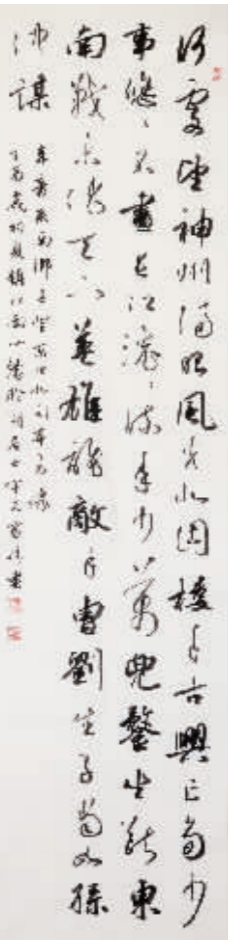 何處望神州滿眼風光北固樓千古興亡多少
事悠々不盡長江滾々流年少萬兜鍪坐斷東
南戰未休天下英雄誰敵手曹劉生子當如孫
仲謀
辛棄疾南鄉子登京口北固亭有懷